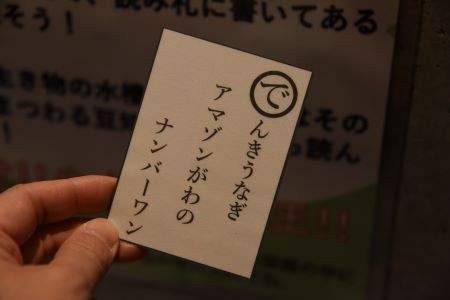 でんきうなぎ
アマゾンがわの
ナンバーワン
、読み札に書いてある
そう！
生き物の水槽
はその
まつわる豆知
読ん
！